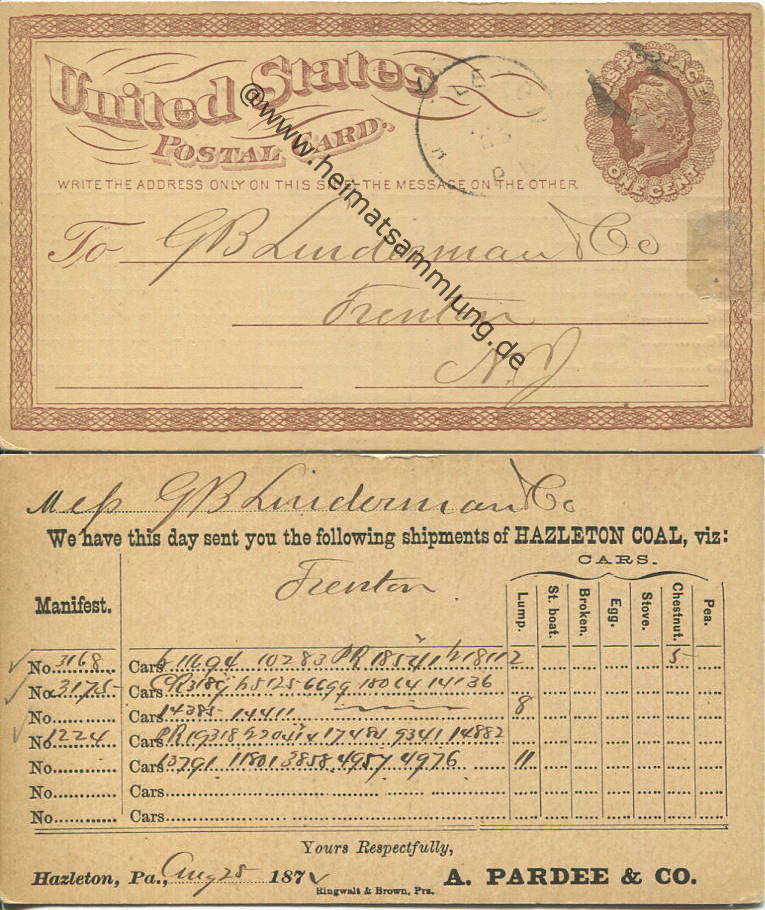 United States
POSTAL CARD.
U.S. POSTAGE
ONE CENT
WRITE THE ADDRESS ONLY ON THIS SIDE - THE MESSAGE ON THE OTHER
@www.heimatsammlung.de
To G B Linderman & Co
Trenton
N. J
Mess G B Linderman & Co
We have this day sent you the following shipments of HAZLETON COAL, viz:
CARS.
Trenton
Manifest.
Lump. St. boat. Broken. Egg. Stove. Chestnut. Pea.
No. 3168 Cars 11694 10283 PR 18541 18112 5
No. 3175 Cars 5125 6699 18064 14136
No. Cars 14385 14411 8
No. 1224 Cars PR 19318 17481 9341 14882
No. Cars 13791 11801 3858 4957 4976 11
No. Cars
No. Cars
Yours Respectfully,
Hazleton, Pa., Aug 28 187 A. PARDEE & CO.
Ringwalt & Brown, Prs.